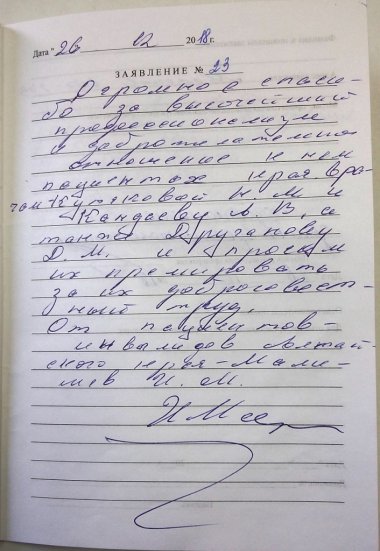 Дата "26 02 2018 г.
ЗАЯВЛЕНИЕ № 23
Огромное спаси-
бо за высочайший
професионализм
и доброжелательное
отношение к нам
пациентах края вра-
чам Куликовой Н. М и
Кандаеву А. В, а
также Друганову
Д. М. и просим
их премировать
за их добросовест-
ный труд.
От пациентов-
инвалидов Алтай-
ского края-
И. М.